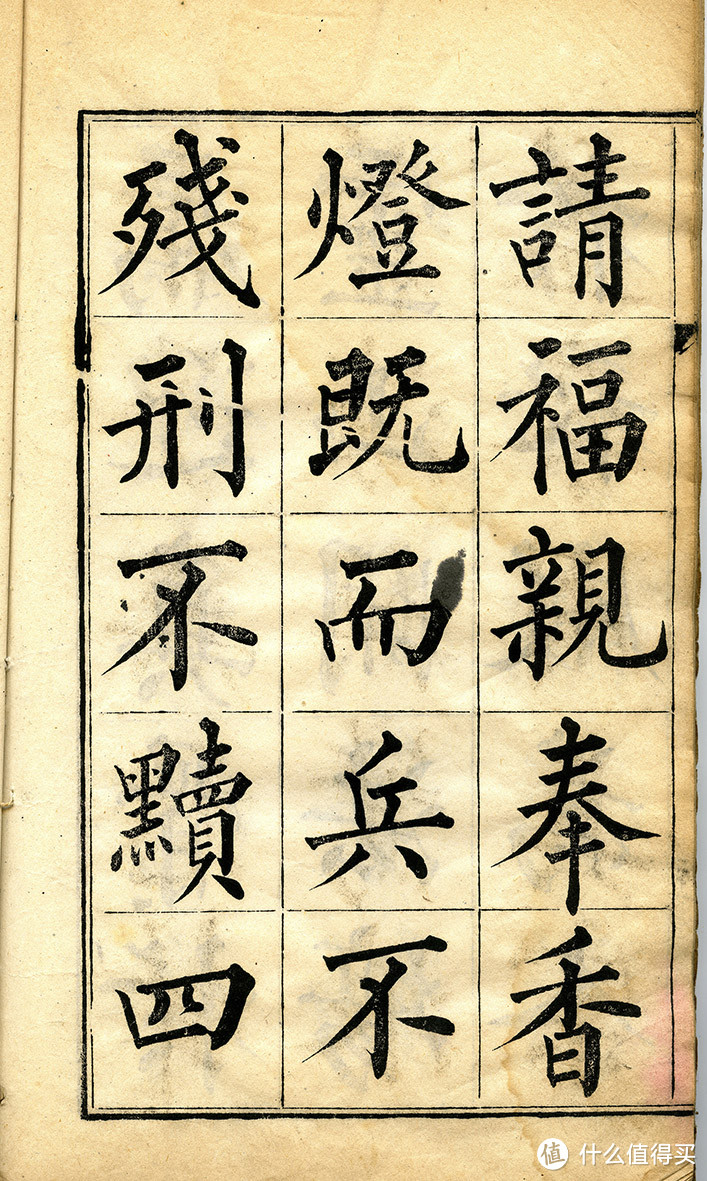 請福親奉香
燈既而兵不
殘刑不黷四
值 什么值得买